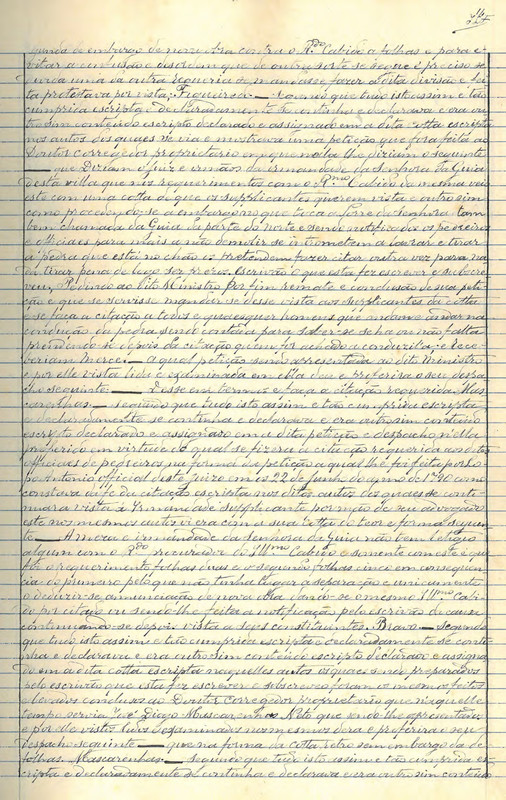 gunda de embargo de nova obra contra o Rdo Cabido a folhas e para e-
vitar a confusão e desordem que de outra sorte se segue é preciso se
una uma da outra requeria se mandasse fazer a dita divisão e fei-
ta protestava por vista. Figueiroa. — Segundo que tudo isto assim e tão
cumprida escripta e declaradamente se continha e declarava e era ou-
tro sim contendo escripto declarado e assignado em a dita cotta escripta
nos autos dos quaes se via e mostrava uma petição que fora feita ao
Doutor corregedor proprietario em que nella lhe diziam o seguinte
— que Diziam o Juiz e irmãos da irmandade da Senhora da Guia
desta villa que nos requerimentos com o Rmo Cabido da mesma veio
este com uma cotta de que os supplicantes querem vista e outrosim
como procedendo-se a embargo no que toca a torre da Senhora tam-
bem chamada da Guia da parte do norte e sendo notificados os pedreiros
e officiaes para mais a não demolir se intromettem a lavrar e tirar
a pedra que está no chão os pretendem fazer citar outra vez para na-
da tirar pena de logo ser prezos. Escrivão o que esta fez escrever e subscre-
veu, Pedindo ao dito Ministro por fim remate e conclusão de sua peti-
ção e que se servisse mandar se desse vista aos supplicantes da cotta
e se faça a citação a todos e quaesquer homens que andam
conducção da pedra sendo contada para saber-se se ha ou não falta
prendendo-se depois da citação quem for achado a conduzil-a e Rece-
beriam Merce. A qual petição sendo apresentada ao dito Ministro
e por elle vista lida e examinada em ella deu e proferira o seu despa-
cho seguinte. — Desse em termos e faça a citação requerida. Mas-
carenhas. — Segundo que tudo isto assim e tão cumprida escripta
e declaradamente se continha e declarava e era outro sim contendo
escripto declarado e assignado em a dita petição e despacho n'ella
proferido em virtude do qual se fizera a citação requerida aos ditos
officiaes de pedreiros na forma da petição a qual lhe foi feita por
Antonio official deste juizo em os 22 de Junho do anno de 1790 como
constava da fé da citação escripta nos ditos autos dos quaes se conti-
nuara vista á Irmandade supplicante por mão de seu advogado
este nos mesmos autos viera com a sua cotta do teor e forma seguin-
te. — A meza e irmandade da Senhora da Guia não tem litigio
algum com o Rdo recorrido do Illmo Cabido e somente com este é que
foi o requerimento folhas duas e o segundo folhas cinco em consequen-
cia do primeiro pelo que não tenha lugar a separação e unicamente
o deduzir-se a nunciação de nova obra dando-se o mesmo Illmo Cabi-
do por citado ou sendo-lhe feita a notificação pelo escrivão da causa
continuando-se depois vista a seos constituintes. Bravo. — Segundo
que tudo isto assim e tão cumprida escripta e declaradamente se conti-
nha e declarava e era outro sim contendo escripto declarado e assigna-
do em a dita cotta escripta naquelles autos os quaes sendo preparados
pelo escrivão que esta fez escrever e subscreveu foram os mesmos feitos
e levados conclusos ao Doutor corregedor proprietario que n'aquelle
tempo servia Diogo Mascarenhas Neto que sendo-lhe apresentados
e por elle vistos lidos e examinados nos mesmos dera e proferira o seu
despacho seguinte — que na forma da cotta retro sem embargo da de
folhas. Mascarenhas. — Segundo que tudo isto assim e tão cumprida es-
cripta e declaradamente se continha e declarava e era outro sim contendo